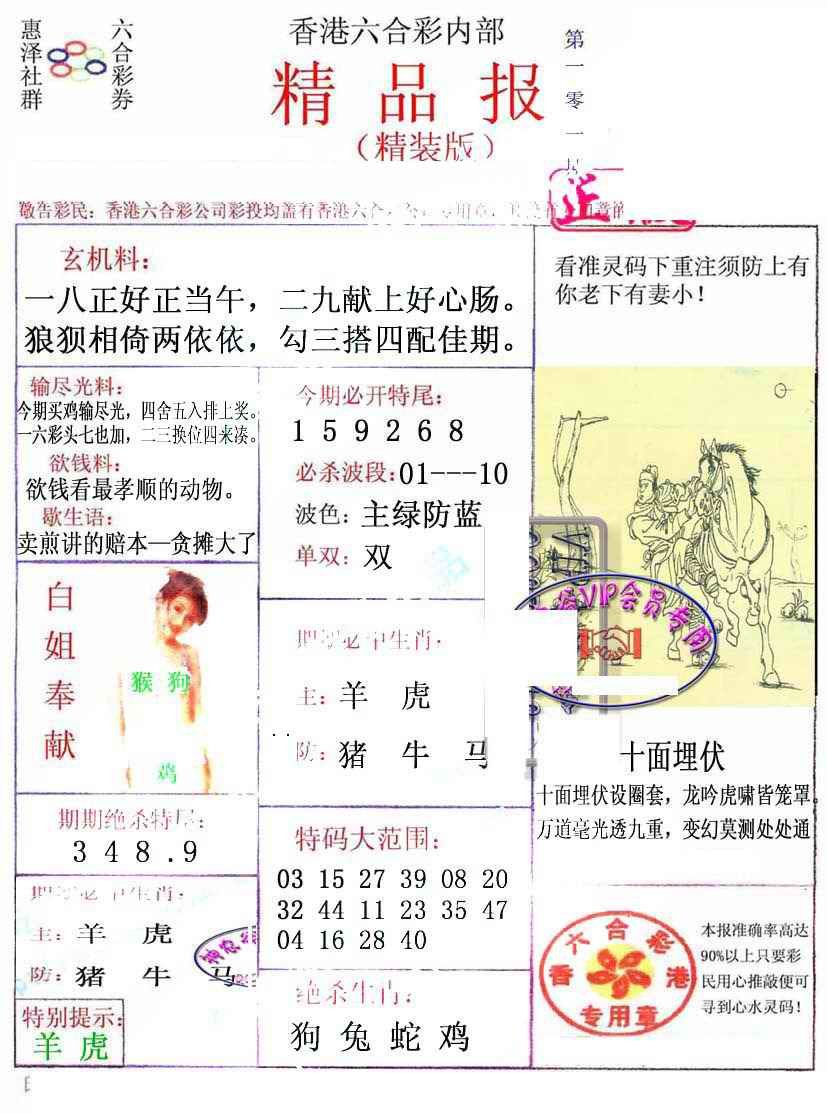 惠泽社群
六合彩券
香港六合彩内部
精品报
（精装版）
第一零一
敬告彩民：香港六合彩公司彩投均盖有香港六合
正
玄机料：
一八正好正当午，二九献上好心肠。
狼狈相倚两依依，勾三搭四配佳期。
看准灵码下重注须防上有
你老下有妻小！
输尽光料：
今期买鸡输尽光，四舍五入排上奖。
一六彩头七也加，二三换位四来凑。
欲钱料：
欲钱看最孝顺的动物。
歇生语：
卖煎讲的赔本—贪摊大了
今期必开特尾：
1 5 9 2 6 8
必杀波段：01---10
波色：主绿防蓝
单双：双
白姐奉献
猴 狗
鸡
期期必中生肖：
主：羊 虎
防：猪 牛 马
VIP会员专用
十面埋伏
十面埋伏设圈套，龙吟虎啸皆笼罩。
万道毫光透九重，变幻莫测处处通
期期绝杀特尾：
3 4 8 . 9
特码大范围：
03 15 27 39 08 20
32 44 11 23 35 47
04 16 28 40
主：羊 虎
防：猪 牛 马
特别提示：
羊 虎
绝杀生肖：
狗 兔 蛇 鸡
香六合彩港
专用章
本报准确率高达
90%以上只要彩
民用心推敲便可
寻到心水灵码！